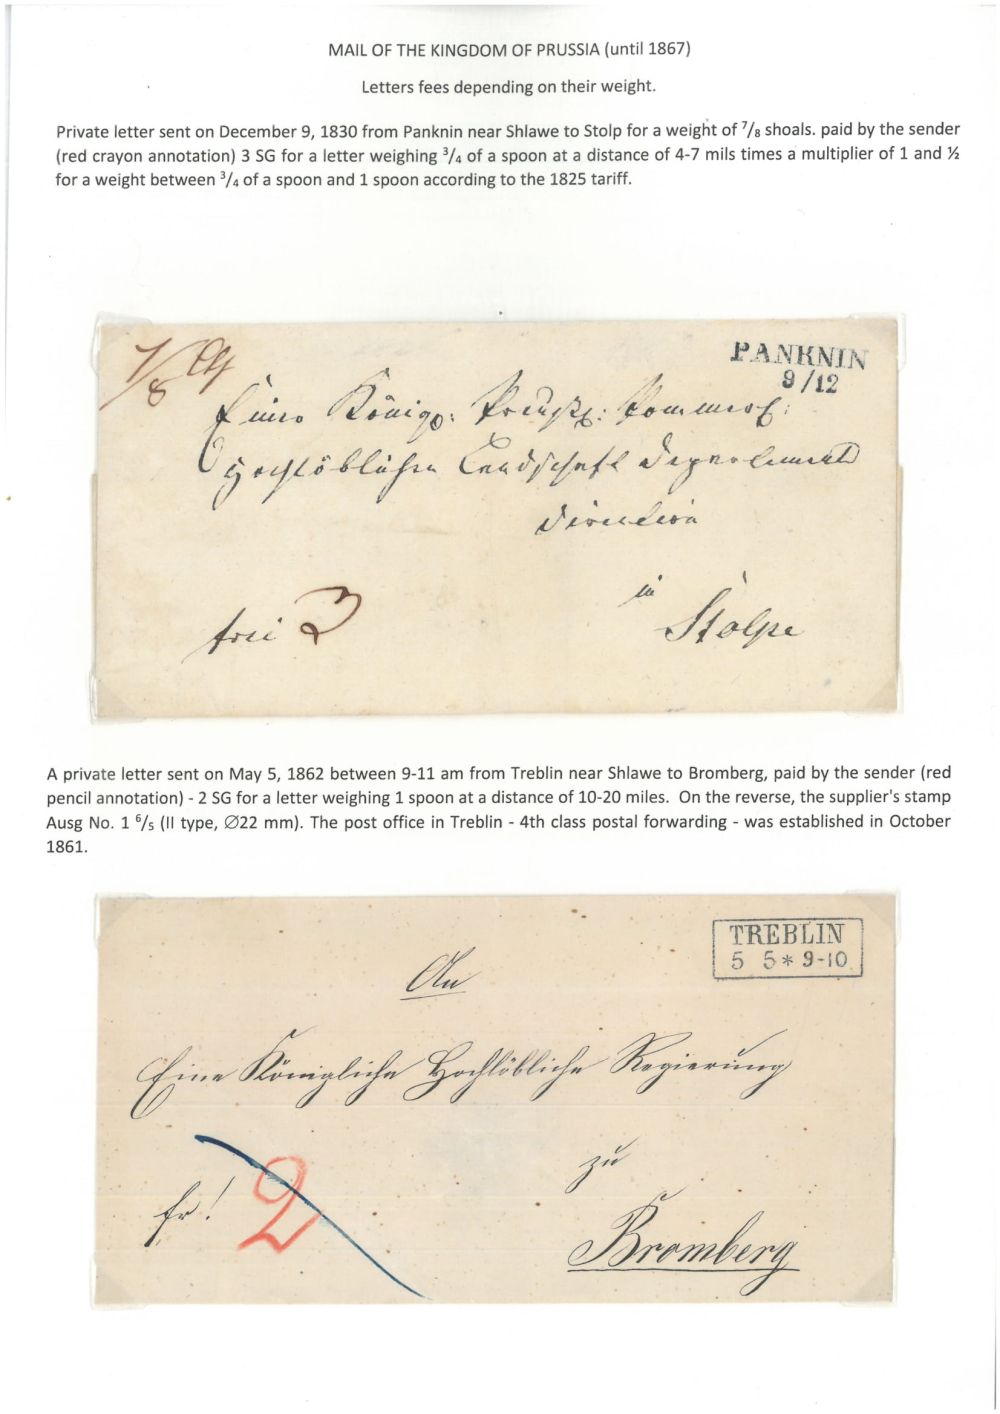 MAIL OF THE KINGDOM OF PRUSSIA (until 1867)
Letters fees depending on their weight.
Private letter sent on December 9, 1830 from Panknin near Shlawe to Stolp for a weight of ⁷/₈ shoals. paid by the sender
(red crayon annotation) 3 SG for a letter weighing ³/₄ of a spoon at a distance of 4-7 mils times a multiplier of 1 and ½
for a weight between ³/₄ of a spoon and 1 spoon according to the 1825 tariff.
7/8
PANKNIN
9/12
Eine Königl: Preuß: Pommersch:
Hochlöblichen Landschaft Departement
Direction
in
frei 3 Stolpe
A private letter sent on May 5, 1862 between 9-11 am from Treblin near Shlawe to Bromberg, paid by the sender (red
pencil annotation) - 2 SG for a letter weighing 1 spoon at a distance of 10-20 miles. On the reverse, the supplier's stamp
Ausg No. 1 ⁶/₅ (II type, ∅22 mm). The post office in Treblin - 4th class postal forwarding - was established in October
1861.
TREBLIN
5 5 * 9-10
An
Eine Königliche Hochlöbliche Regierung
zu
fr! 2
Bromberg